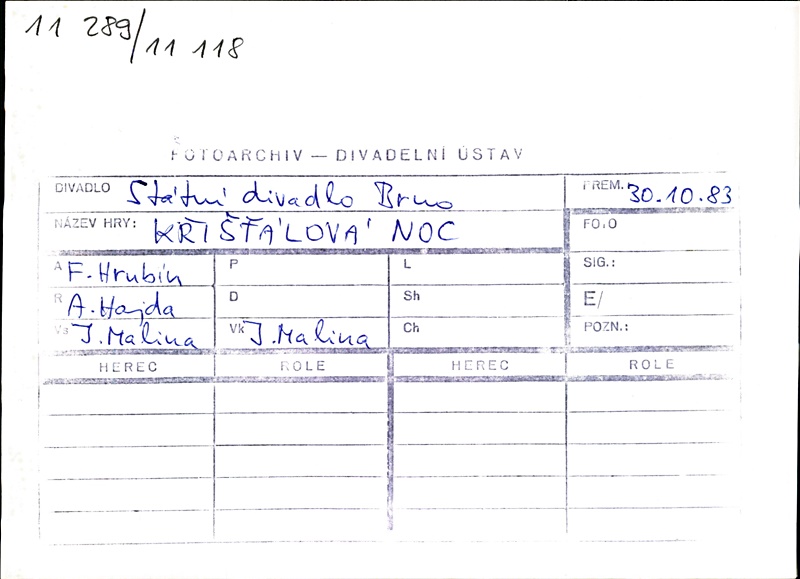 11 289/11 118
FOTOARCHIV — DIVADELNÍ ÚSTAV
DIVADLO Státní divadlo Brno PREM. 30.10.83
NÁZEV HRY: KŘIŠŤÁLOVÁ NOC FOTO
A F. Hrubín P L SIG.:
R A. Hajda D Sh E/
Vs J. Malina Vk J. Malina Ch POZN.:
HEREC ROLE HEREC ROLE